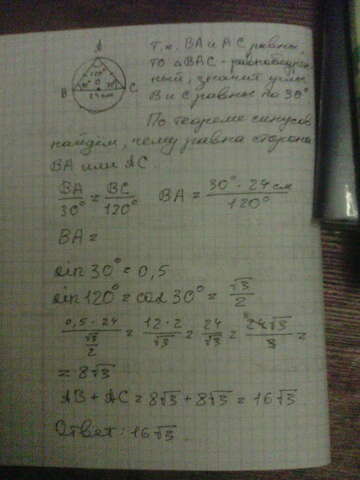 A
120°
30° O 30°
B C
24 см
Т.к. BA и AC равны,
то △BAC - равнобедрен-
ный, значит углы
B и C равны по 30°.
По теореме синусов
найдем, чему равна сторона
BA или AC
BA/30° = BC/120° BA = 30° · 24 см/120°
BA =
sin 30° = 0,5
sin 120° = cos 30° = √3/2
0,5 · 24/(√3/2) = 12 · 2/√3 = 24/√3 = 24√3/3 =
= 8√3
AB + AC = 8√3 + 8√3 = 16√3
Ответ: 16√3.